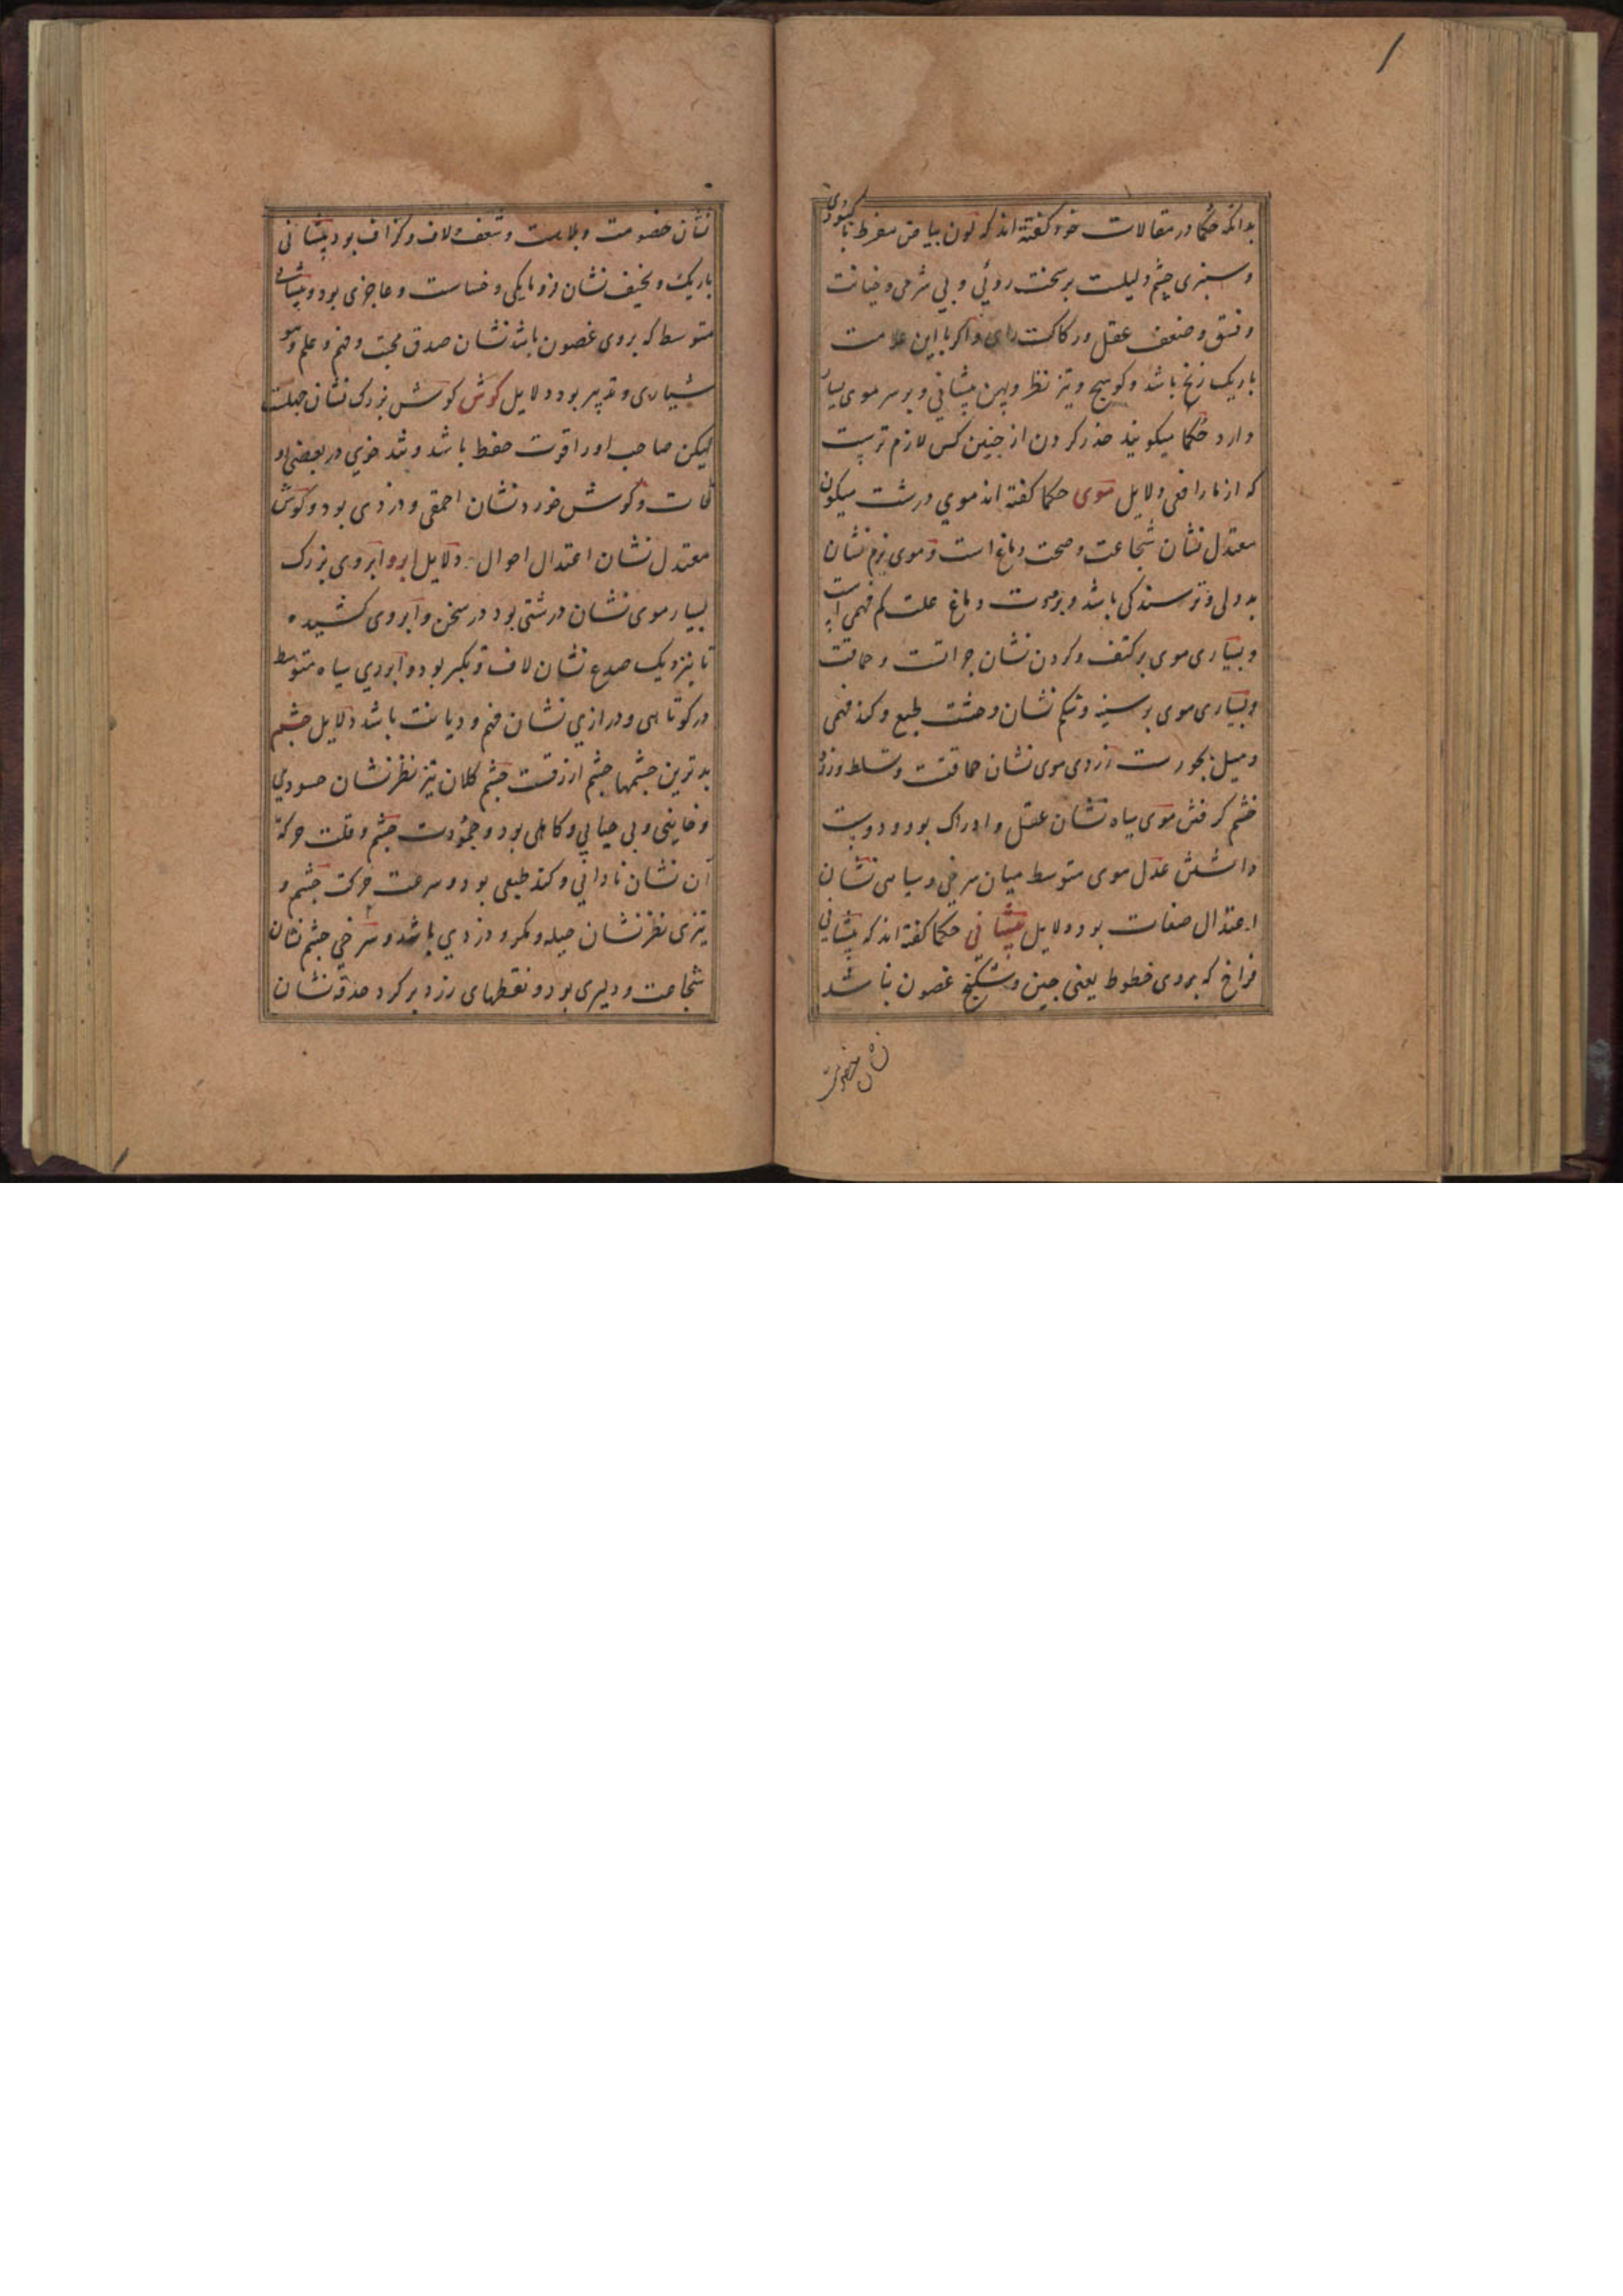 بدانکه حکما در مقالات خود گفته اند که لون بیاض مفرط با کبودی
و سبزی چشم دلیلست بر سخت روئی و بی شرمی و خیانت
و فسق و ضعف عقل و رکاکت رای و اگر با این علامت
باریک زنخ باشد و کوسج و تیز نظر و پهن پیشانی و بر سر موی بسیار
دارد حکما میکویند حذر کردن از چنین کس لازم ترست
که از مار افعی دلایل موی حکما گفته اند موی درشت میکون
معتدل نشان شجاعت و صحت دماغ است و موی نرم نشان
بد دلی و ترسندکی باشد و برودت دماغ علت کم فهمی است
و بسیاری موی بر کتف و کردن نشان جرائت و حماقت
و بسیاری موی بر سینه و شکم نشان وحشت طبع و کند فهمی
و میل بجورست زردی موی نشان حماقت و تسلط و زود
خشم کرفتن موی سیاه نشان عقل و ادراک بود و دوست
داشتن عدل موی متوسط میان سرخی و سیاهی نشان
اعتدال صفات بود دلایل پیشانی حکما گفته اند که پیشانی
فراخ که بروی خطوط یعنی چین و شکنج غصون باشد
نشان خصومت
نشان خصومت و بلاست و شعف و لاف و کزاف بود پیشانی
باریک و نحیف نشان فرومایکی و خساست و عاجزی بود و پیشانی
متوسط که بروی غصون باشد نشان صدق محبت و فهم و علم و هو
شیاری و تدبیر بود دلایل کوش کوش بزرک نشان جهلست
لیکن صاحب او را قوت حفظ باشد و تند خوی در بعضی او
قات و کوش خورد نشان احمقی و دزدی بود و کوش
معتدل نشان اعتدال احوال دلایل ابرو ابروی بزرک
بسیار موی نشان درشتی بود در سخن و ابروی کشیده
تا بنزدیک صدغ نشان لاف و تکبر بود و ابروی سیاه متوسط
در کوتاهی و درازی نشان فهم و دیانت باشد دلایل چشم
بدترین چشمها چشم ازرقست چشم کلان تیز نظر نشان حسودی
و خاینی و بی حیایی و کاهلی بود و جمودت چشم و قلت حرکة
آن نشان نادانی و کند طبعی بود و سرعت حرکت چشم و
تیزی نظر نشان حیله و مکر و دزدی باشد و سرخی چشم نشان
شجاعت و دلیری بود و نقطهای زرد بر کرد حدقه نشان